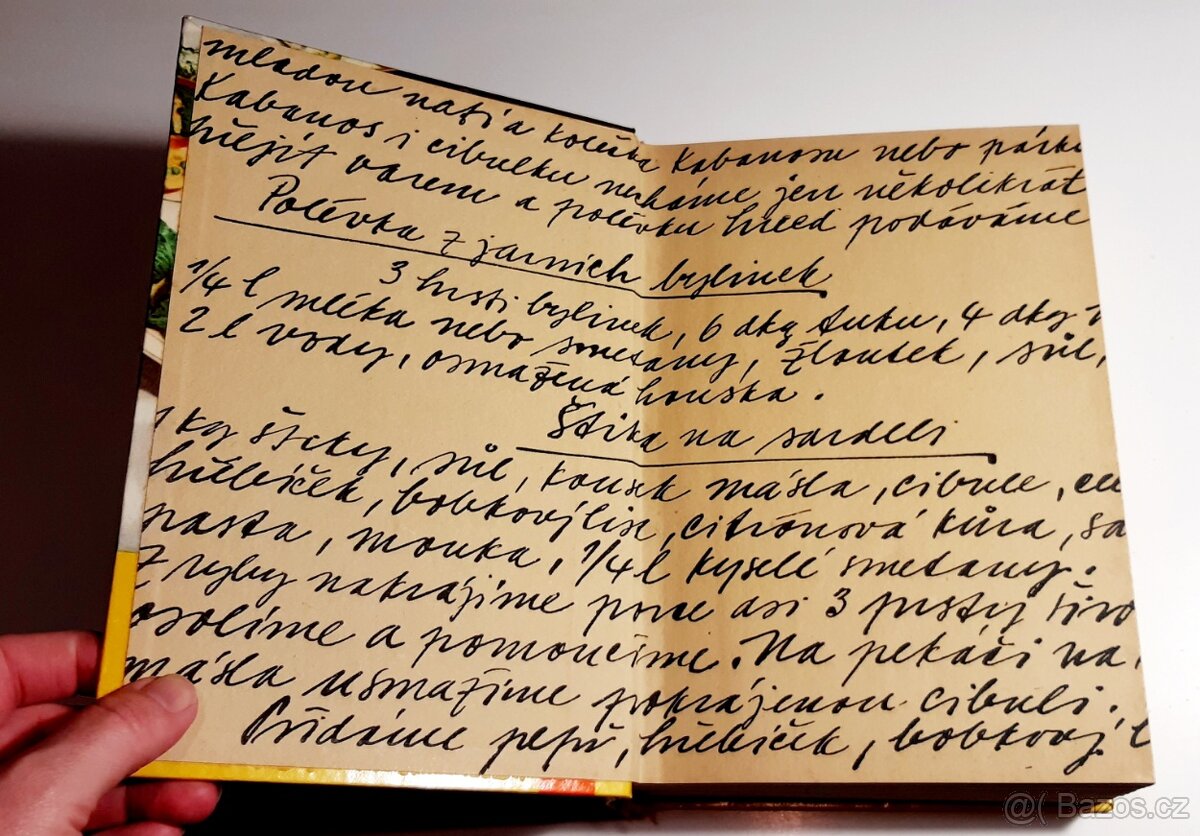 mladou natí a kolečka Kabanosu nebo párku
Kabanos i cibulku necháme jen několikrát
přejít varem a polévku hned podáváme
Polévka z jarních bylinek
3 hrsti bylinek, 6 dkg tuku, 4 dkg
1/4 l mléka nebo smetany, žloutek, sůl,
2 l vody, osmažená houska.
Štika na sardeli
1 kg štiky, sůl, kousek másla, cibule,
hřebíček, bobkový list, citrónová kůra, sa
pasta, mouka, 1/4 l kyselé smetany.
Z ryby nakrájíme porce asi 3 prsty širo
osolíme a pomoučíme. Na pekáči na
másla usmažíme pokrájenou cibuli.
Přidáme pepř, hřebíček, bobkový l
@( Bazos.cz